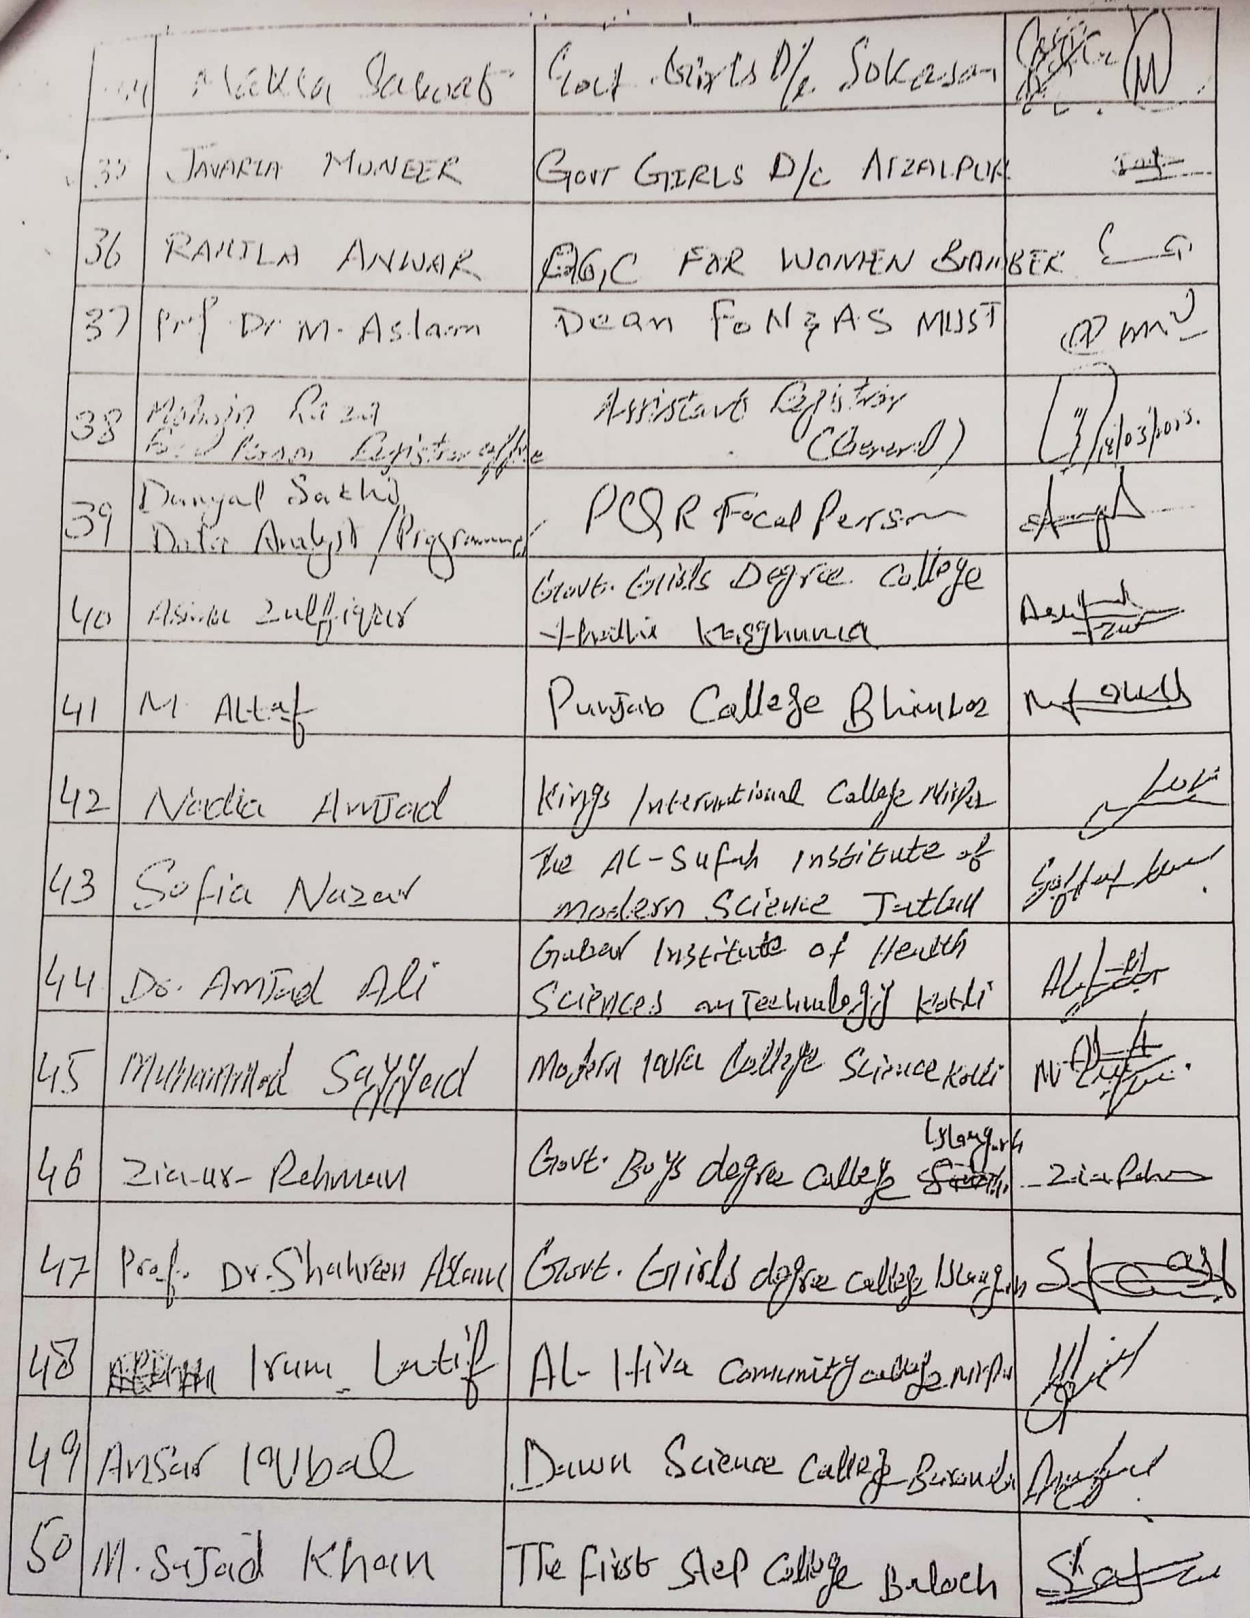 Govt. Girls D/c Sokasan
35 JAVARIA MUNEER GOVT GIRLS D/C AFZALPUR
36 RAHILA ANWAR FOR WOMEN
37 Prof Dr M. Aslam Dean FoN&AS MUST
38 Mohsin Raza Assistant Registrar
Focal Person Registrar office (General)
39 Danyal Sakhi PCQR Focal Person
Data Analyst /Programmer
40 Zulfiqar Govt. Girls Degree College
41 M Altaf Punjab College Bhimber
42 Nadia Amjad Kings International College Mirpur
43 Sofia Nazar The AL-Sufah Institute of
Modern Science
44 Dr. Amjad Ali Institute of Health
Sciences an Technology Kotli
45 Muhammad Sayyad Modern College Science Kotli
46 Zia-ur-Rehman Govt. Boys degree College Islamgarh Zia Rehm
47 Prof. Dr. Shaheen Aslam Govt. Girls degree College Islamgarh
48 Irum Latif AL-Hira Comunity college Mirpur
49 Ansar Iqbal Dawn Science College
50 M. Sajad Khan The First Step College Baloch